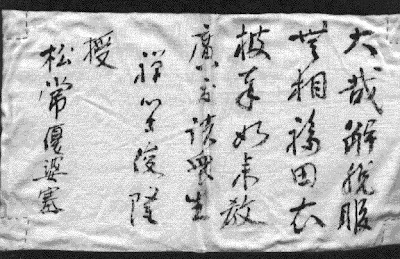 大哉解脱服
無相福田衣
披奉如来教
廣度諸衆生
祥岳俊隆
授
松常優婆塞